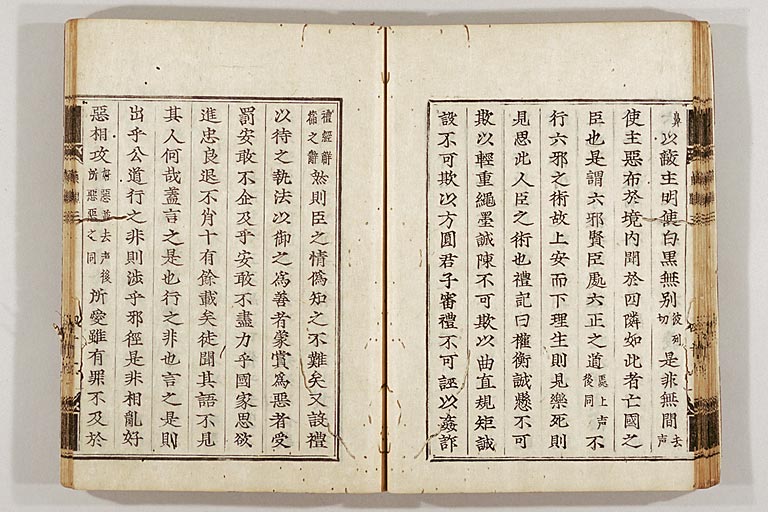 鼻以蔽主明使白黑無别彼列切是非無間去声
使主惡布於境内聞於四隣如此者亡國之
臣也是謂六邪賢臣處六正之道處上声後同不
行六邪之術故上安而下理生則見樂死則
見思此人臣之術也禮記曰權衡誠懸不可
欺以輕重繩墨誠陳不可欺以曲直規矩誠
設不可欺以方圓君子審禮不可誣以姦詐
禮經解篇之辭然則臣之情僞知之不難矣又設禮
以待之執法以御之爲善者蒙賞爲惡者受
罰安敢不企及乎安敢不盡力乎國家思欲
進忠良退不肖十有餘載矣徒聞其語不見
其人何哉蓋言之是也行之非也言之是則
出乎公道行之非則涉乎邪徑是非相亂好
惡相攻好惡並去声後所惡惡之同所愛雖有罪不及於